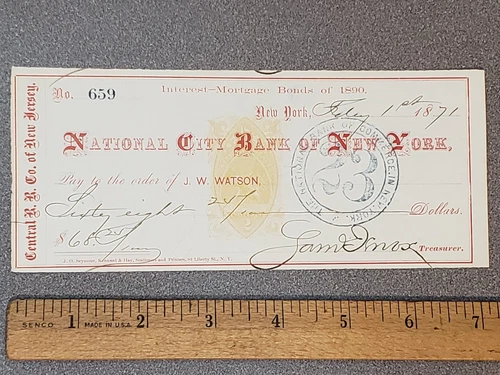 Interest—Mortgage Bonds of 1890.
No. 659
New York, Feby 1st 1871
NATIONAL CITY BANK OF NEW YORK,
Pay to the order of J. W. WATSON,
Sixty eight 25/100 Dollars.
$68.25/100
Treasurer.
Central R. R. Co. of New Jersey.
THE NATIONAL BANK OF COMMERCE IN NEW YORK.
23
SENCO MADE IN U.S.A.
1 2 3 4 5 6 7